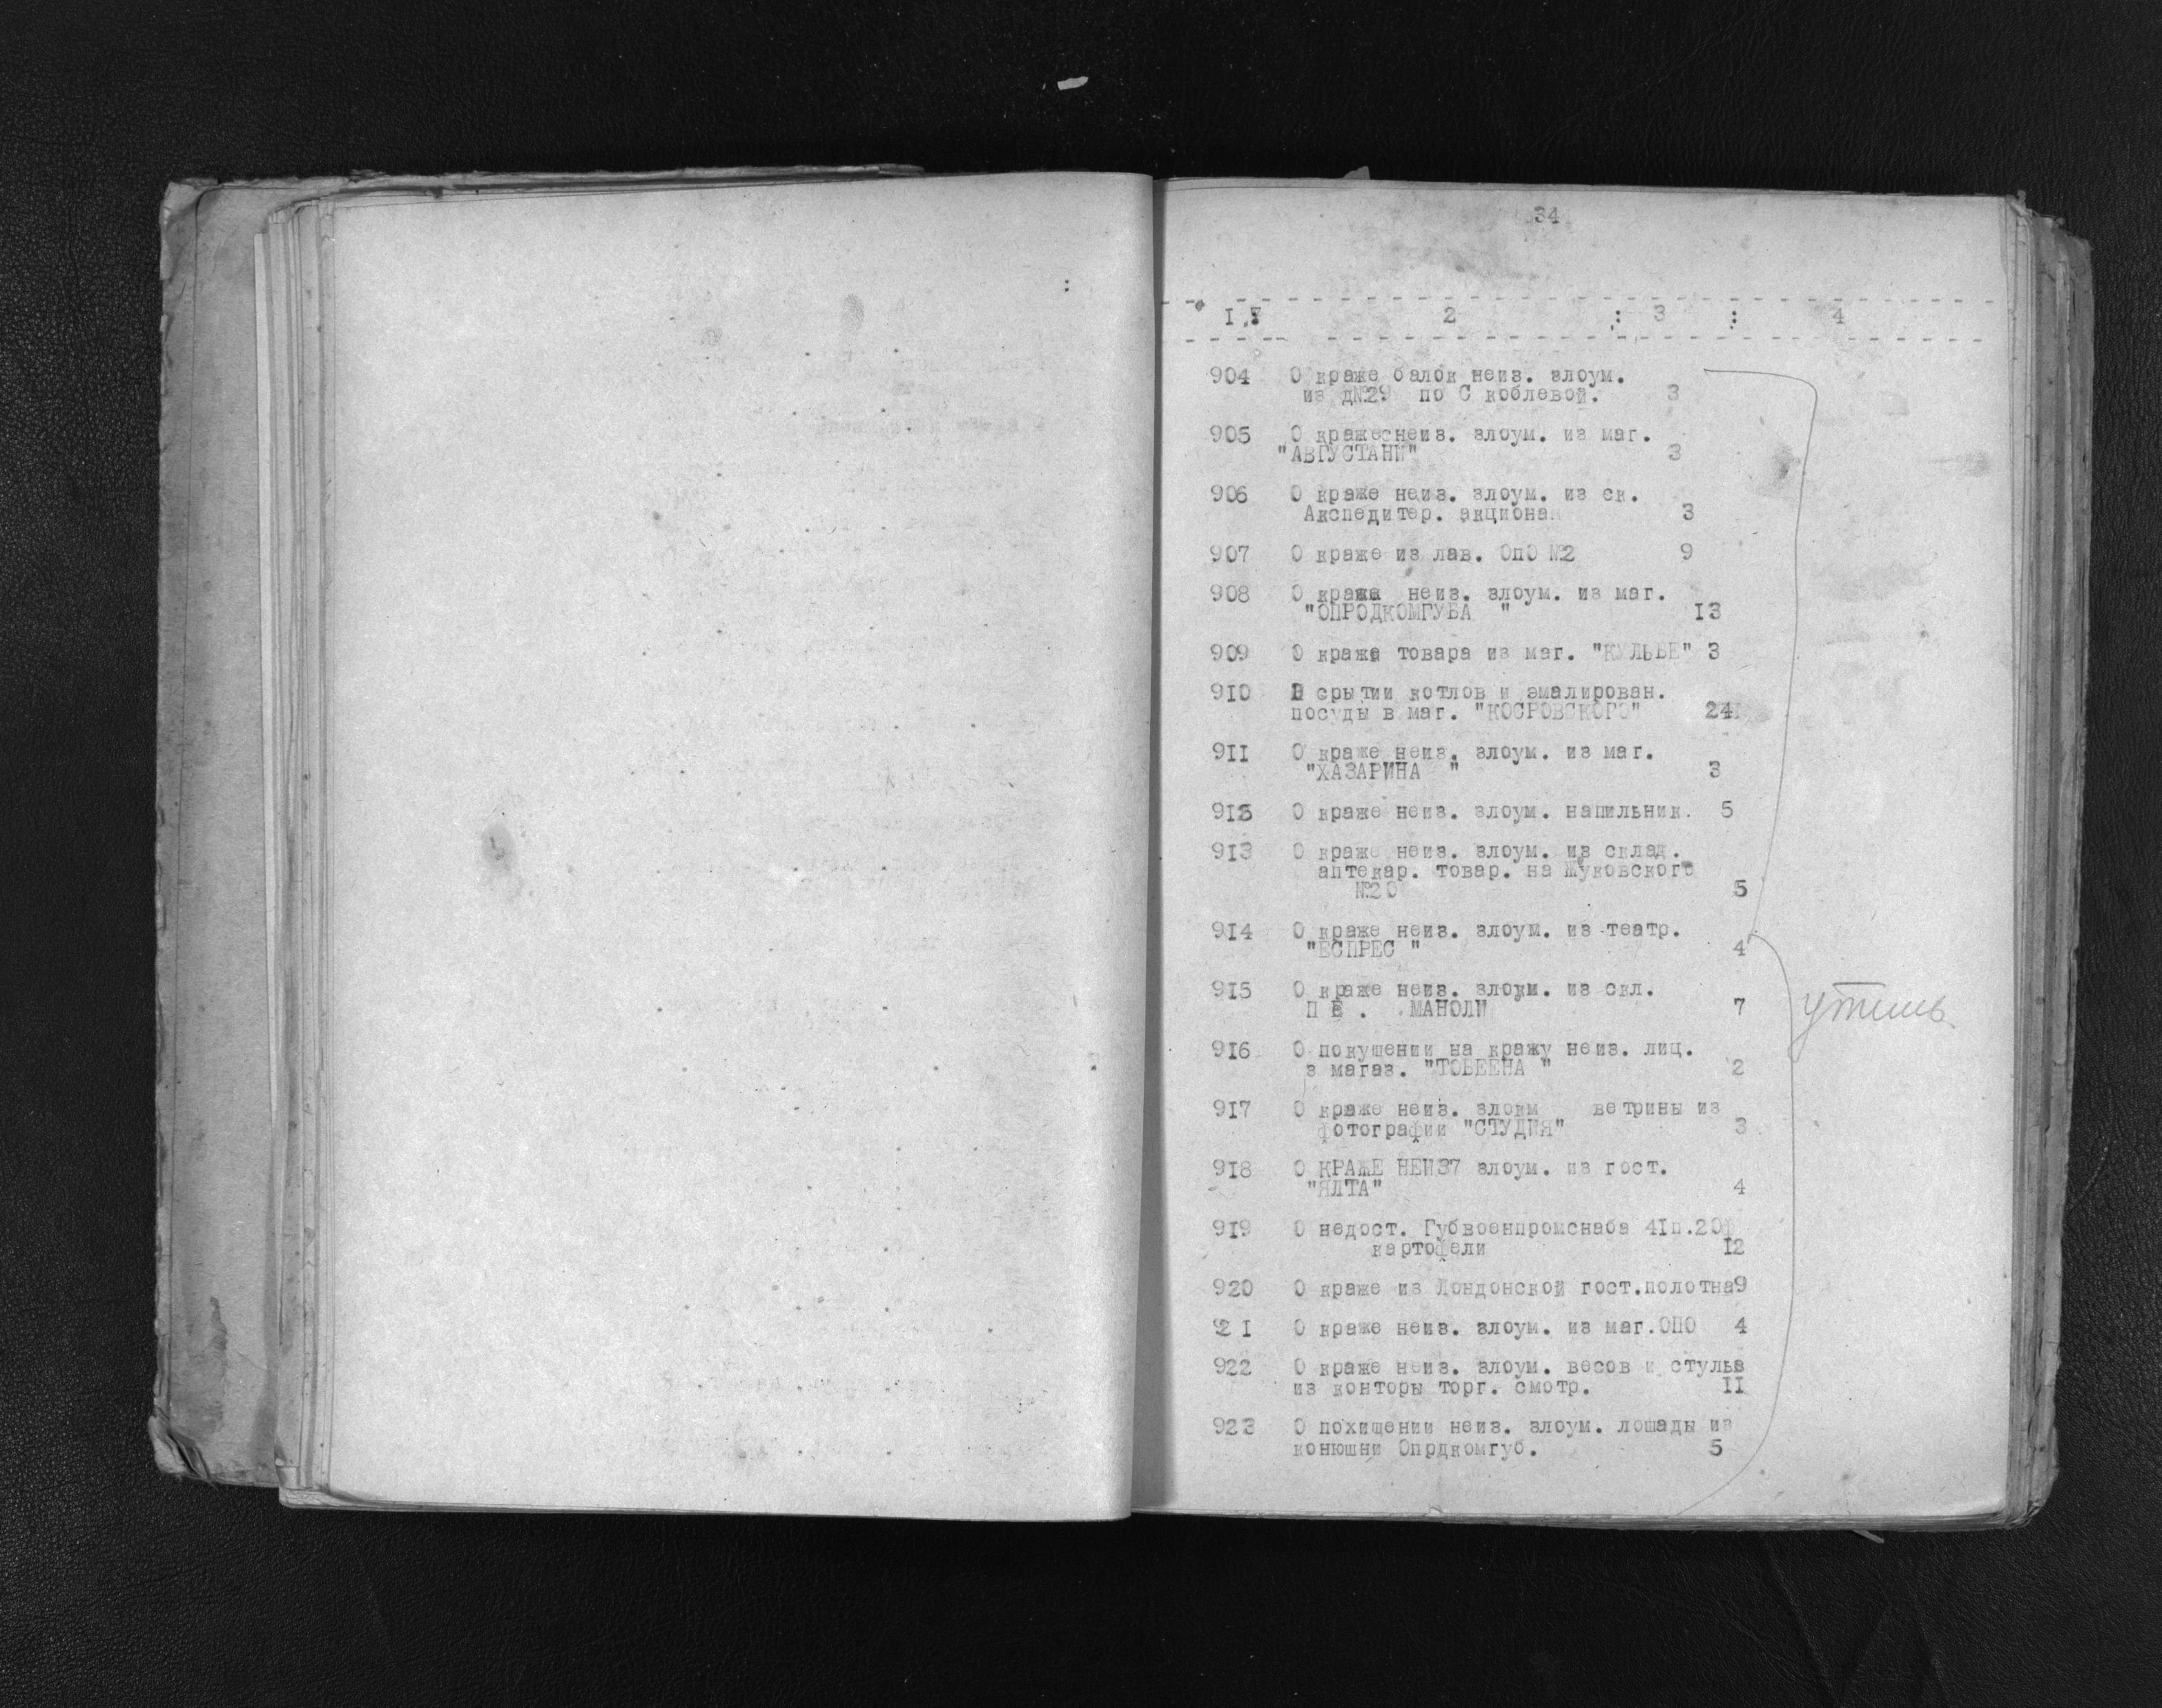 34
I : 2 : 3 : 4
904 О краже балок неиз. злоум.
из д№29 по С коблевой. 3
905 О краже неиз. злоум. из маг.
"АВГУСТАНИ" 3
906 О краже неиз. злоум. из ск.
Акспедитер. акциона 3
907 О краже из лав. ОпО №2 9
908 О кража неиз. злоум. из маг.
"ОПРОДКОМГУБА " I3
909 О кража товара из маг. "КУЛЬБЕ" 3
9I0 О срытии котлов и эмалирован.
посуды в маг. "КОСРОВСКОГО" 24
9II О краже неиз. злоум. из маг.
"ХАЗАРИНА " 3
9I2 О краже неиз. злоум. напильник. 5
9I3 О краже неиз. злоум. из склад.
аптекар. товар. на Жуковского
№20 5
9I4 О краже неиз. злоум. из театр.
"ЕСПРЕС " 4
9I5 О краже неиз. злоум. из скл.
П Е . .МАНОЛИ 7
9I6 О покушении на кражу неиз. лиц.
з магаз. "ТОБЕЕНА " 2
9I7 О краже неиз. злоум ветрины из
фотографии "СТУДИЯ" 3
9I8 О КРАЖЕ НЕИЗ7 злоум. из гост.
"ЯЛТА" 4
9I9 О недост. Губвоенпромснаба 4Iп.20ф
картофели I2
920 О краже из Лондонской гост.полотна9
92I О краже неиз. злоум. из маг.ОПО 4
922 О краже неиз. злоум. весов и стульв
из конторы торг. смотр. II
923 О похищении неиз. злоум. лошады из
конюшни Опрдкомгуб. 5
утиль